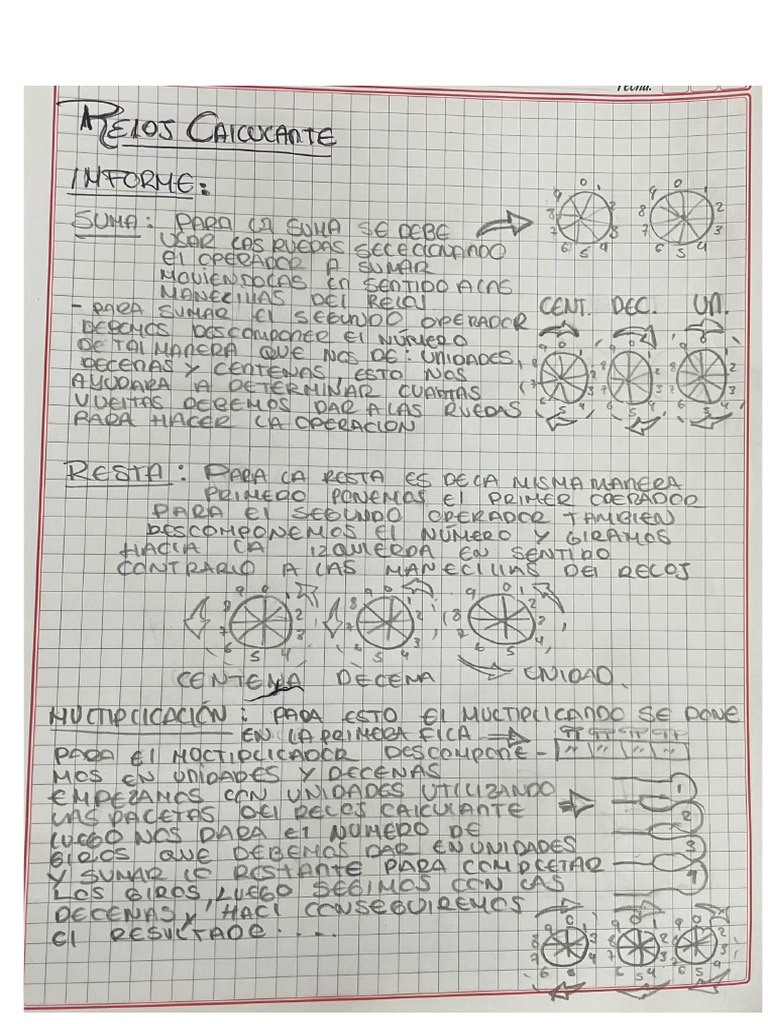 Fecha:
RELOJ CALCULANTE
INFORME:
SUMA: PARA LA SUMA SE DEBE
USAR LAS RUEDAS SELECIONANDO
EL OPERADOR A SUMAR
MOVIENDOLAS EN SENTIDO A LAS
MANECILLAS DEL RELOJ
0 1 2 3 4 5 6 7 8 9
0 1 2 3 4 5 6 7 8 9
CENT. DEC. UN.
- PARA SUMAR EL SEGUNDO OPERADOR
DEBEMOS DESCOMPONER EL NÚMERO
DE TAL MANERA QUE NOS DE: UNIDADES,
DECENAS Y CENTENAS, ESTO NOS
AYUDARA A DETERMINAR CUANTAS
VUELTAS DEBEMOS DAR A LAS RUEDAS
PARA HACER LA OPERACION
RESTA: PARA LA RESTA ES DE LA MISMA MANERA
PRIMERO PONEMOS EL PRIMER OPERADOR
PARA EL SEGUNDO OPERADOR TAMBIEN
DESCOMPONEMOS EL NÚMERO Y GIRAMOS
HACIA LA IZQUIERDA EN SENTIDO
CONTRARIO A LAS MANECILLAS DEL RELOJ
CENTENA DECENA UNIDAD.
MULTIPLICACIÓN: PARA ESTO EL MULTIPLICANDO SE PONE
EN LA PRIMERA FILA
PARA EL MULTIPLICADOR DESCOMPONE-
MOS EN UNIDADES Y DECENAS
EMPEZAMOS CON UNIDADES UTILIZANDO
LAS PALETAS DEL RELOJ CALCULANTE
LUEGO NOS DARA EL NUMERO DE
GIROS QUE DEBEMOS DAR EN UNIDADES
Y SUMAR LO RESTANTE PARA COMPLETAR
LOS GIROS, LUEGO SEGIMOS CON LAS
DECENAS Y HACI CONSEGUIREMOS
EL RESULTADO....
1
2
3
4